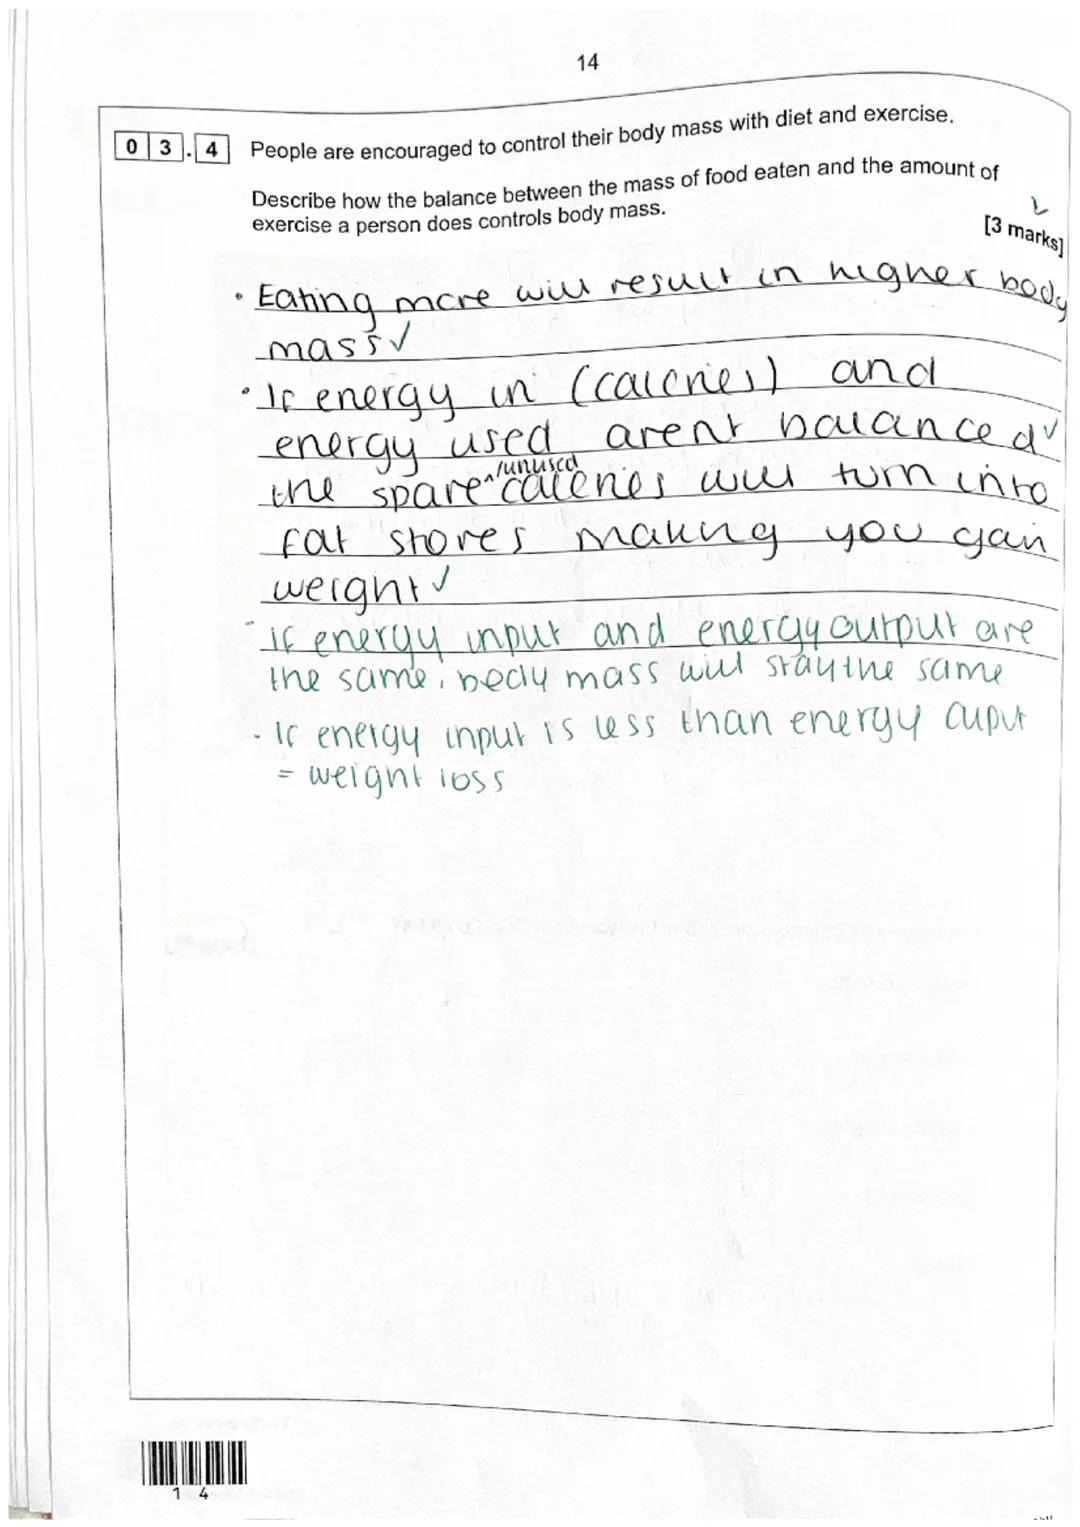 14
0 3 . 4 People are encouraged to control their body mass with diet and exercise.
Describe how the balance between the mass of food eaten and the amount of
exercise a person does controls body mass.
[3 marks]
• Eating more will result in higher body
mass ✓
• If energy in (calories) and
energy used arent balanced ✓
/unused
the spare ^ calories will turn into
fat stores making you gain
weight ✓
- if energy input and energy output are
the same, body mass will stay the same
- If energy input is less than energy ouput
= weight loss
1 4